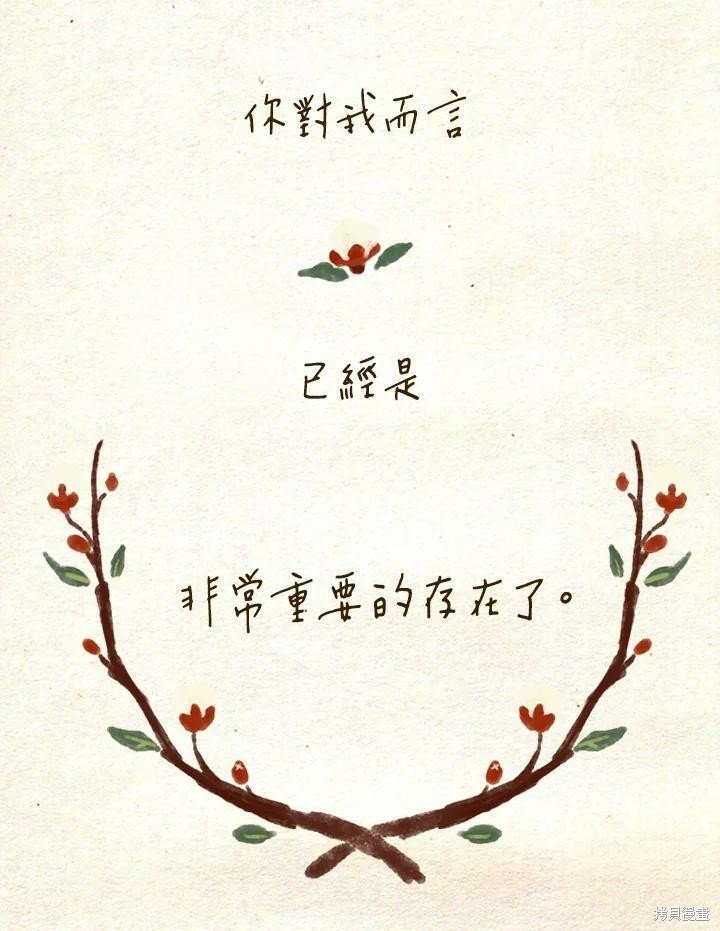 你對我而言
已經是
非常重要的存在了。
拷貝漫畫